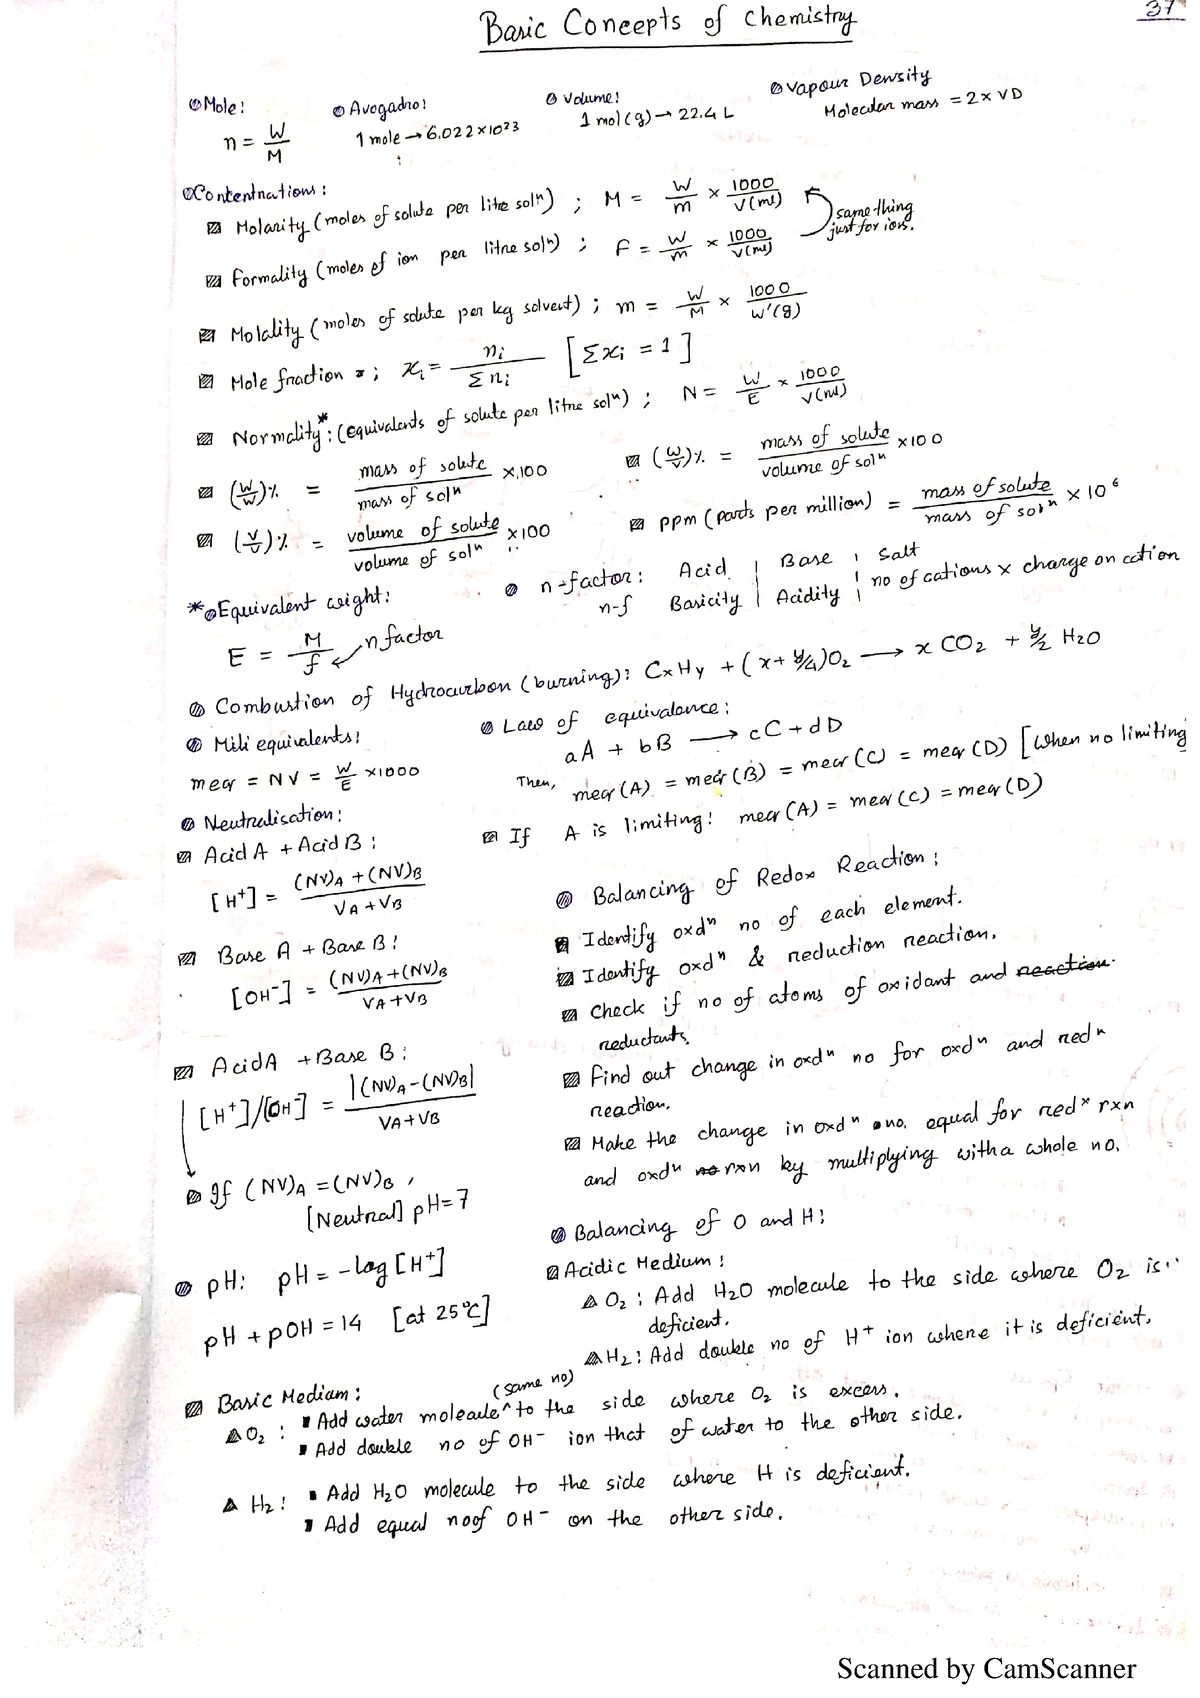 Basic Concepts of Chemistry
37
Mole:
n = W/M
Avogadro:
1 mole → 6.022×10²³
Volume:
1 mol(g) → 22.4 L
Vapour Density
Molecular mass = 2 × VD
Contentnations:
Molarity (moles of solute per litre solⁿ) ; M = W/m × 1000/V(ml)
same thing
just for ion.
Formality (moles of ion per litre solⁿ) ; F = W/m × 1000/V(ml)
Molality (moles of solute per kg solvent) ; m = W/M × 1000/W'(g)
Mole fraction ; xᵢ = nᵢ/Σnᵢ [Σxᵢ = 1]
Normality*: (equivalents of solute per litre solⁿ) ; N = W/E × 1000/V(ml)
(W/W)% = mass of solute/mass of solⁿ × 100
(W/V)% = mass of solute/volume of solⁿ × 100
(V/V)% = volume of solute/volume of solⁿ × 100
ppm (parts per million) = mass of solute/mass of solⁿ × 10⁶
n-factor: Acid | Base | Salt
n-f Basicity | Acidity | no of cations × charge on cation
*Equivalent weight:
E = M/f ← n factor
Combustion of Hydrocarbon (burning): CxHy + (x + y/4)O₂ → x CO₂ + y/2 H₂O
Mili equivalents:
meqr = NV = W/E × 1000
Law of equivalence:
aA + bB → cC + dD
Then, meqr(A) = meqr(B) = meqr(C) = meqr(D) [When no limiting
If A is limiting: meqr(A) = meqr(C) = meqr(D)
Neutralisation:
Acid A + Acid B:
[H⁺] = (NV)A + (NV)B / VA + VB
Base A + Base B:
[OH⁻] = (NV)A + (NV)B / VA + VB
Acid A + Base B:
[H⁺]/[OH⁻] = |(NV)A - (NV)B| / VA + VB
If (NV)A = (NV)B ,
[Neutral] pH = 7
pH: pH = -log [H⁺]
pH + pOH = 14 [at 25°C]
Balancing of Redox Reaction:
Identify oxdⁿ no of each element.
Identify oxdⁿ & reduction reaction.
Check if no of atoms of oxidant and reaction.
reductants.
Find out change in oxdⁿ no for oxdⁿ and redⁿ
reaction.
Make the change in oxdⁿ no. equal for redˣ rxn
and oxdⁿ rxn by multiplying with a whole no.
Balancing of O and H:
Acidic Medium:
O₂ : Add H₂O molecule to the side where O₂ is
deficient.
H₂ : Add double no of H⁺ ion where it is deficient.
Basic Medium:
(same no)
O₂ : Add water molecule ^ to the side where O₂ is excess.
Add double no of OH⁻ ion that of water to the other side.
H₂ : Add H₂O molecule to the side where H is deficient.
Add equal no of OH⁻ on the other side.
Scanned by CamScanner